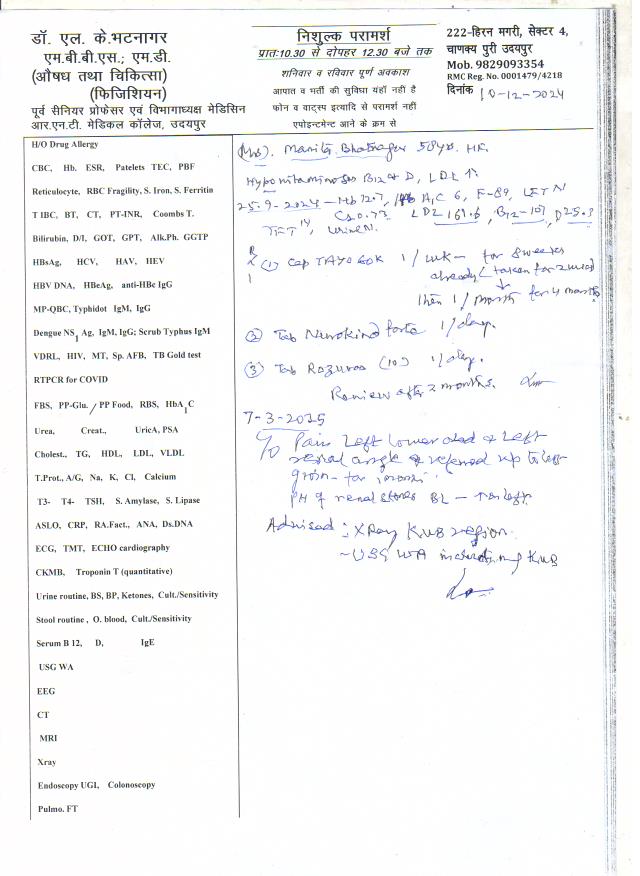 डॉ. एल. के.भटनागर
एम.बी.बी.एस.; एम.डी.
(औषध तथा चिकित्सा)
(फिजिशियन)
पूर्व सीनियर प्रोफेसर एवं विभागाध्यक्ष मेडिसिन
आर.एन.टी. मेडिकल कॉलेज, उदयपुर
निशुल्क परामर्श
प्रातः10.30 से दोपहर 12.30 बजे तक
शनिवार व रविवार पूर्ण अवकाश
आपात व भर्ती की सुविधा यहाँ नहीं है
फोन व वाट्स इत्यादि से परामर्श नहीं
एपोइन्टमेन्ट आने के क्रम से
222-हिरन मगरी, सेक्टर 4,
चाणक्य पुरी उदयपुर
Mob. 9829093354
RMC Reg. No. 0001479/4218
दिनांक 10-12-2024
H/O Drug Allergy
CBC, Hb. ESR, Patelets TEC, PBF
Reticulocyte, RBC Fragility, S. Iron, S. Ferritin
T IBC, BT, CT, PT-INR, Coombs T.
Bilirubin, D/I, GOT, GPT, Alk.Ph. GGTP
HBsAg, HCV, HAV, HEV
HBV DNA, HBeAg, anti-HBe IgG
MP-QBC, Typhidot IgM, IgG
Dengue NS1 Ag, IgM, IgG; Scrub Typhus IgM
VDRL, HIV, MT, Sp. AFB, TB Gold test
RTPCR for COVID
FBS, PP-Glu. / PP Food, RBS, HbA1C
Urea, Creat., UricA, PSA
Cholest., TG, HDL, LDL, VLDL
T.Prot., A/G, Na, K, Cl, Calcium
T3- T4- TSH, S. Amylase, S. Lipase
ASLO, CRP, RA.Fact., ANA, Ds.DNA
ECG, TMT, ECHO cardiography
CKMB, Troponin T (quantitative)
Urine routine, BS, BP, Ketones, Cult./Sensitivity
Stool routine , O. blood, Cult./Sensitivity
Serum B 12, D, IgE
USG WA
EEG
CT
MRI
Xray
Endoscopy UGI, Colonoscopy
Pulmo. FT
(Mrs). Bhatnagar 58yo.
Hypovitaminoses B12 & D, LDL ↑.
25.9-2024 - Hb 12.7, A1C 6, F-89, LFT N
LDL 161.6, B12-107, D 25.3
(1) Cap TAYO 60K 1/wk - for 8 weeks
already (taken for 2 
then 1/month for 4 months
(2) Tab Neurokind forte 1/day.
(3) Tab Rozuvas (10) 1/day.
Review after 2 months.
7-3-2025
C/O Pain left lower & left
renal angle & referred up to left
groin - for
PH of renal stones BL -
Advised : XRay KUB region
-USG WA including KUB